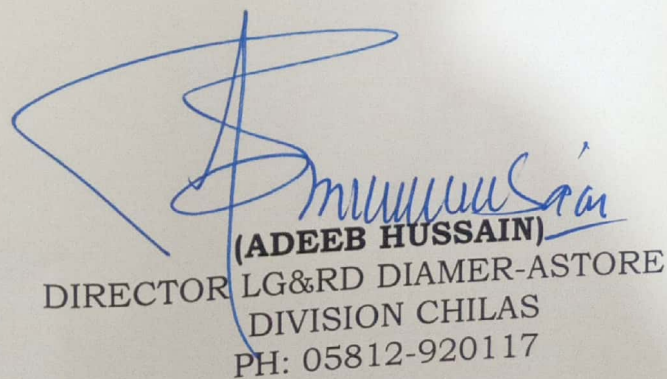 (ADEEB HUSSAIN)
DIRECTOR LG&RD DIAMER-ASTORE
DIVISION CHILAS
PH: 05812-920117